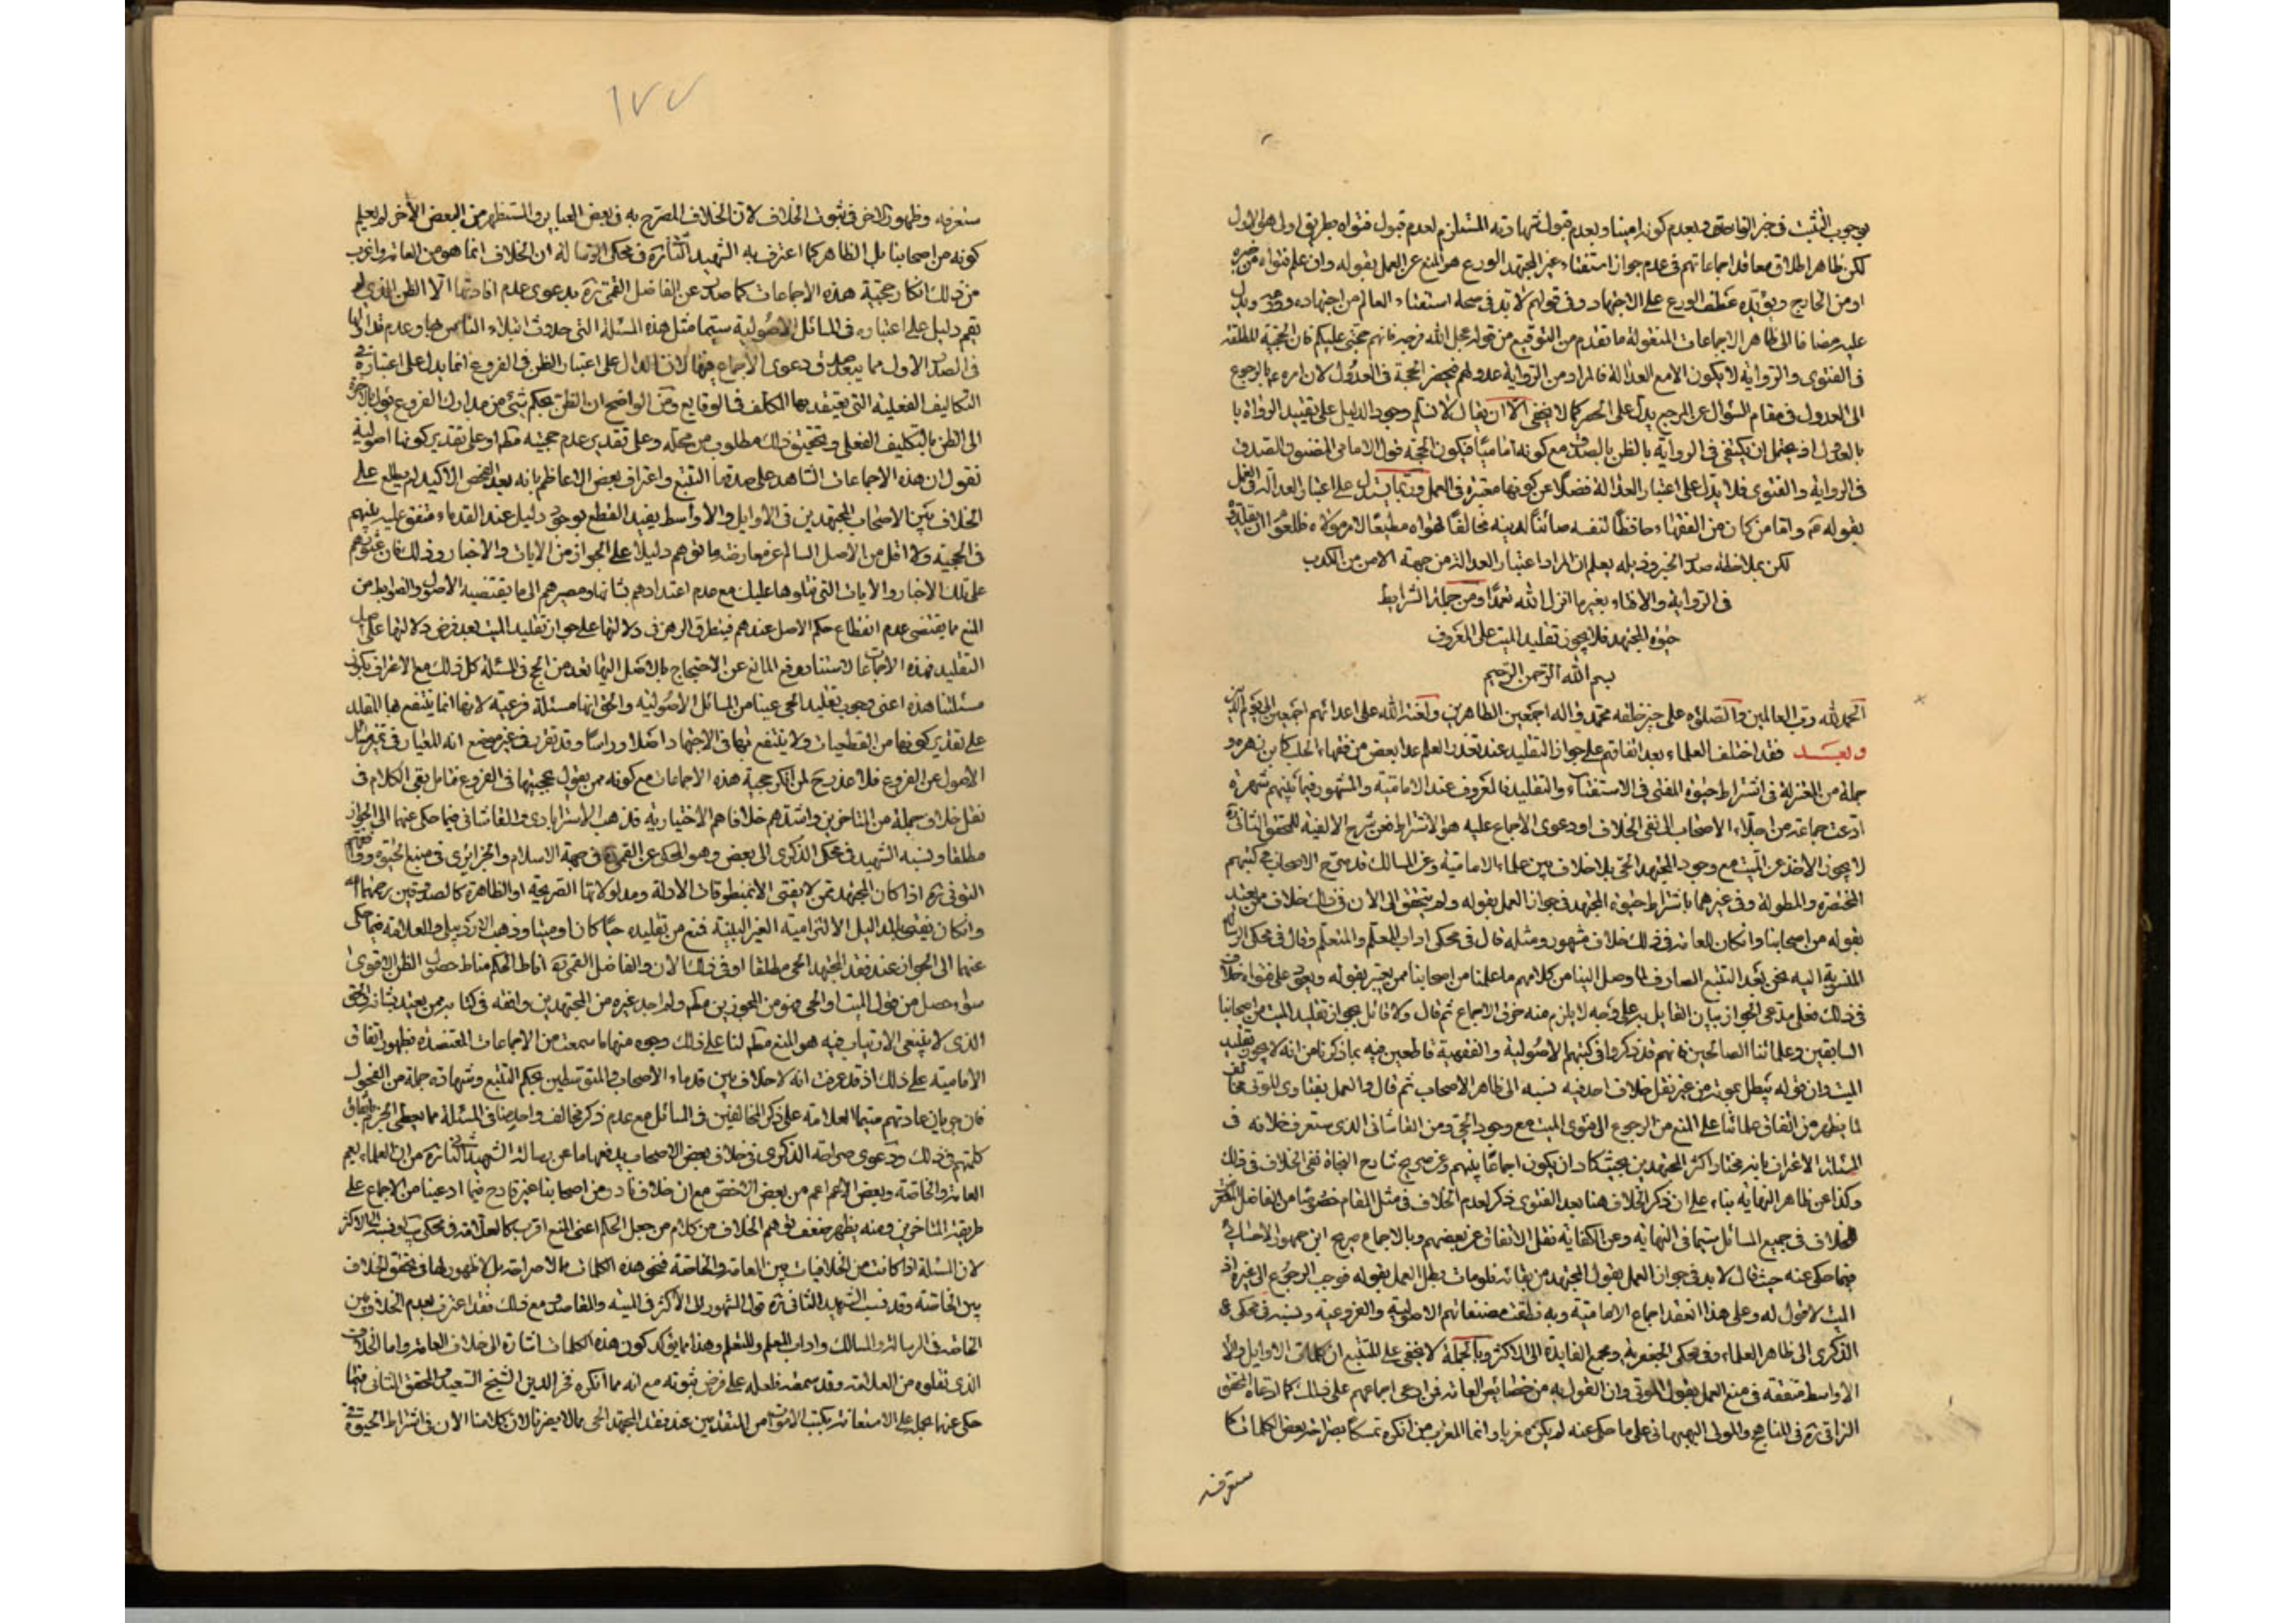 بوجوب التثبت في خبر الفاسق وبعدم كونه امينا وبعدم قبول شهادته المستلزم لعدم قبول فتواه بطريق اولى هو الاول
لكن ظاهر اطلاق معاقد اجماعاتهم في عدم جواز استفتاء غير المجتهد الورع هو المنع عن العمل بقوله وان علم فتواه من خبره
او من الخارج ويؤيده عطف الورع على الاجتهاد وفي قولهم لا بد في صحة استفتاء العالم من اجتهاده وورعه ويدل
عليه مضافا الى ظاهر الاجماعات المنقولة ما تقدم من التوقيع من قوله عجل الله فرجه فانهم حجتي عليكم فان الحجية المطلقة
في الفتوى والرواية لا يكون الا مع العدالة فالمراد من الرواية عدولهم فيحصر الحجة في العدول لان امره ع بالرجوع
الى العدول في مقام السؤال عن المرجع يدل على الحصر كما لا يخفى الا ان يقال لا نسلم وجود الدليل على تقييد الرواة با
بالعدول اذ يحتمل ان يكتفى في الرواية بالظن بالصدق مع كونه اماميا فيكون الحجة قول الامامي المظنون الصدق
في الرواية والفتوى فلا يدل على اعتبار العدالة فضلا عن كونها معتبرة في العمل وربما يستدل على اعتبار العدالة في العمل
بقوله ع واما من كان من الفقهاء حافظا لنفسه صائنا لدينه مخالفا لهواه مطيعا لامر مولاه فللعوام ان يقلدوه
لكن بملاحظة صدر الخبر وذيله يعلم ان المراد اعتبار العدالة من جهة الامن من الكذب
في الرواية والافتاء بغير ما انزل الله تعمدا ومن جملة الشرايط
حيوة المجتهد فلا يجوز تقليد الميت على المعروف
بسم الله الرحمن الرحيم
الحمد لله رب العالمين والصلوة على خير خلقه محمد واله اجمعين الطاهرين ولعنة الله على اعدائهم اجمعين الى يوم الدين
وبعد فقد اختلف العلماء بعد اتفاقهم على جواز التقليد عند تعذر العلم عدا بعض من فقهاء الحلب كابن زهره و
جملة من المعتزلة في اشتراط حيوة المفتي في الاستفتاء والتقليد فالمعروف عند الامامية والمشهور فيما بينهم شهرة
ادعت جماعة من اجلاء الاصحاب الى نفي الخلاف او دعوى الاجماع عليه هو الاشتراط فعن شرح الالفية للمحقق الثاني ره
لا يجوز الاخذ عن الميت مع وجود المجتهد الحي بلا خلاف بين علماء الامامية وعن المسالك قد صرح الاصحاب في كتبهم
المختصرة والمطولة وفي غيرهما باشتراط حيوة المجتهد في جواز العمل بقوله ولم يتحقق الى الان في ذلك خلاف ممن يعتد
بقوله من اصحابنا وان كان للعامة في ذلك خلاف مشهور ومثله قال في محكي اداب المعلم والمتعلم وقال في محكي الرسالة
المنسوبة اليه نحن بعد التتبع الصادف لما وصل الينا من كلامهم ما علمنا من اصحابنا ممن يعتبر بقوله ويعول على فتواه خلاف
في ذلك فعلى مدعي الجواز بيان القايل به على وجه لا يلزم منه خرق الاجماع ثم قال ولا قائل بجواز تقليد الميت من اصحابنا
السابقين وعلمائنا الصالحين فانهم قد ذكروا في كتبهم الاصولية والفقهية قاطعين فيه بما ذكرنا من انه لا يجوز تقليد
الميت وان قوله يبطل بموته من غير نقل خلاف احد فيه نسبه الى ظاهر الاصحاب ثم قال والعمل بفتاوى الموتى مخالف
لما يظهر من اتفاق علمائنا على المنع من الرجوع الى فتوى الميت مع وجود الحي ومن القاشاني الذي ستعرف خلافه في
المسئلة الاعتراف بانه مختار اكثر المجتهدين بحيث كاد ان يكون اجماعا بينهم وعن صريح شارح النجاة نفي الخلاف في ذلك
وكذا عن ظاهر النهاية بناء على ان ذكر الخلاف هنا بعد الفتوى ذكر لعدم الخلاف في مثل المقام خصوصا من الفاضل
الخلاف في جميع المسائل سيما في النهاية وعن الكفاية نقل الاتفاق عن بعضهم وبالاجماع صرح ابن جمهور الاحسائي
فيما حكي عنه حيث قال لا بد في جواز العمل بقول المجتهد من بقائه فلو مات بطل العمل بقوله فوجب الرجوع الى غيره اذ
الميت لا قول له وعلى هذا انعقد اجماع الامامية وبه نطقت مصنفاتهم الاصولية والفروعية ونسبه في محكي
الذكرى الى ظاهر العلماء وفي محكي الجعفرية ومجمع الفايدة الى الاكثر وبالجملة لا يخفى على المتتبع ان كلمات الاوايل والا
الاواسط متفقة في منع العمل بقول الموتى وان القول به من خصائص العامة فمن ادعى اجماعهم على ذلك كما ادعاه المحقق
النراقي ره في المناهج والمولى البهبهاني على ما حكي عنه لم يكن مغربا وانما المغرب من انكره تمسكا بصراحة بعض الكلمات كما
ستعرفه
١٧٧
ستعرفه وظهور الاخر في ثبوت الخلاف لان الخلاف المصرح به في بعض العباير والمستظهر من البعض الاخر لم يعلم
كونه من اصحابنا بل الظاهر كما اعترف به الشهيد الثاني ره في محكي الرسالة ان الخلاف انما هو من العامة واغرب
من ذلك انكار حجية هذه الاجماعات كما صدر عن الفاضل القمي ره بدعوى عدم افادتها الا الظن الذي لم
يقم دليل على اعتباره في المسائل الاصولية سيما مثل هذه المسئلة التي حدوث ابتلاء الناس بها وعدم تداولها
في الصدر الاول مما يبعد صدق دعوى الاجماع فيها لان الدال على اعتبار الظن في الفروع انما يدل على اعتباره في
التكاليف الفعلية التي يعتقد بها المكلف في الوقايع ومن الواضح ان الظن بحكم شئ من مدارك الفروع يؤل بالاخرة
الى الظن بالتكليف الفعلي وتحقيق ذلك مطلوب من محله وعلى تقدير عدم حجيته مطلقا وعلى تقدير كونها اصولية
نقول ان هذه الاجماعات الشاهد على صدقها التتبع واعتراف بعض الاعاظم بانه بعد الفحص الاكيد لم يطلع على
الخلاف بين الاصحاب المجتهدين في الاوايل والاواسط يفيد القطع بوجود دليل عند القدماء متفق عليه بينهم
في الحجية ولا اقل من الاصل السالم عن معارضة ما توهم دليلا على الجواز من الايات والاخبار وذلك فان عثورهم
على تلك الاخبار والايات التي نتلوها عليك مع عدم اعتدادهم بشانها ومصيرهم الى ما يقتضيه الاصول والضوابط من
المنع مما يقتضى عدم انقطاع حكم الاصل عندهم فيتطرق الوهن في دلالتها على جواز تقليد الميت بعد فرض دلالتها على اصل
التقليد فهذه الاجماعات لاستنادها ورفع المانع عن الاحتجاج بالاصل اليها تعد من الحجج في المسئلة كل ذلك مع الاعتراف بكون
مسئلتنا هذه اعنى وجوب تقليد الحي عينا من المسائل الاصولية والحق انها مسئلة فرعية لانها انما ينتفع بها المقلد
على تقدير كونها من القطعيات ولا ينتفع بها في الاجتهاد اصلا وراسا وقد تقرر في غير موضع انه المعيار في تميز مسائل
الاصول عن الفروع فلا عذر لمن انكر حجية هذه الاجماعات مع كونه ممن يقول بحجيتها في الفروع فتامل بقي الكلام في
نقل خلاف جملة من المتاخرين واشدهم خلافا هم الاخبارية فذهب الاسترابادي والقاشاني فيما حكي عنهما الى الجواز
مطلقا ونسبه الشهيد في محكي الذكرى الى بعض وهو المحكي عن القمي في جهة الاسلام والجزائري في منبع الحيوة
التوني ره اذا كان المجتهد ممن لا يفتي الا بمنطوقات الادلة ومدلولاتها الصريحة او الظاهرة كالصدوقين رحمهما الله
وان كان يفتي بالمداليل الالتزامية الغير البينة فمنع من تقليده حيا كان او ميتا وذهب الاردبيلي والعلامة فيما حكي
عنهما الى الجواز عند فقد المجتهد الحي مطلقا او في ذلك الان والفاضل القمي ره اناط الحكم مناط حصول الظن الاقوى
سواء حصل من قول الميت او الحي فهو من المجوزين مطلقا ولم اجد غيره من المجتهدين وافقه في كتابه ممن يعتد بشانه والحق
الذي لا ينبغي الارتياب فيه هو المنع مطلقا لنا على ذلك وجوه منها ما سمعت من الاجماعات المعتضدة بظهور اتفاق
الامامية على ذلك اذ قد عرفت انه لا خلاف بين قدماء الاصحاب والمتوسطين بحكم التتبع وشهادة جملة من الفحول
فان جريان عادتهم سيما العلامة على ذكر المخالفين في المسائل مع عدم ذكر مخالف واحد منا في المسئلة مما يعطى الجزم باتفاق
كلمتهم في ذلك ودعوى صراحة الذكرى في خلاف بعض الاصحاب يدفعها ما عن رسالة الشهيد الثاني ره من ان العلماء يعم
العامة والخاصة وبعض الاعم اعم من بعض الاخص مع ان خلاف نادر من اصحابنا غير قادح فيما ادعينا من الاجماع على
طريقة المتاخرين ومنه يظهر ضعف توهم الخلاف من كلام من جعل الحكم اعنى المنع اقرب كالعلامة في محكي
لان المسئلة اذا كانت من الخلافيات بين العامة والخاصة فنحو هذه الكلمات مما لا صراحة بل لا ظهور لها في تحقق الخلاف
بين الخاصة وقد نسب الشهيد الثاني ره قول المشهور الى الاكثر في المسئلة والمقاصد ومع ذلك فقد اعترف بعدم الخلاف بين
الخاصة في الرسالة والمسالك واداب المعلم والمتعلم وهذا مما يؤكد كون هذه الكلمات اشارة الى خلاف العامة واما الخلاف
الذي نقلوه من العلامة وقد سمعته فلعله على فرض ثبوته مع انه مما انكره فخر الدين الشيخ السعيد والمحقق الثاني فيما
حكي عنهما محمل على الاستعانة بكتب الاموات من المتقدمين عند فقد المجتهد الحي مما لا يضرنا لان كلامنا الان في اشتراط الحيوة